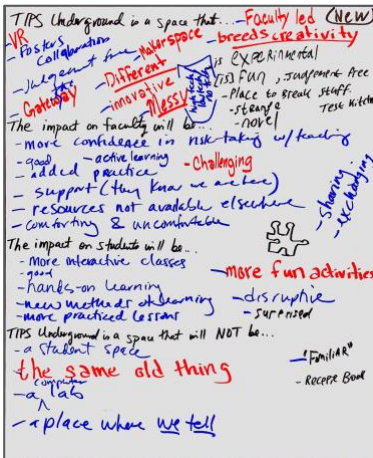 TIPS Underground is a space that... - Faculty led (NEW)
- VR
- Fosters Collaboration
- Makerspace
- breeds creativity
- Judgement free
- Different
- Gateway
- innovative
- Messy
is EXPERIMENTAL
(is) FUN, Judgement Free
- Place to Break Stuff.
- strange
- novel
Test Kitchen
The impact on faculty will be...
- more confidence in risk-taking w/ teaching
- good
- active learning
- added practice
- Challenging
- support (they know we are here)
- resources not available elsewhere
- comforting & uncomfortable
- sharing
- exchanging
The impact on students will be...
- More interactive classes
- good
- more fun activities
- hands-on learning
- new methods of learning
- disruptive
- more practiced lessons
- surprised
TIPS Underground is a space that will NOT be...
- a student space
- "FAMILIAR"
the same old thing
- a computer lab
- a place where we tell